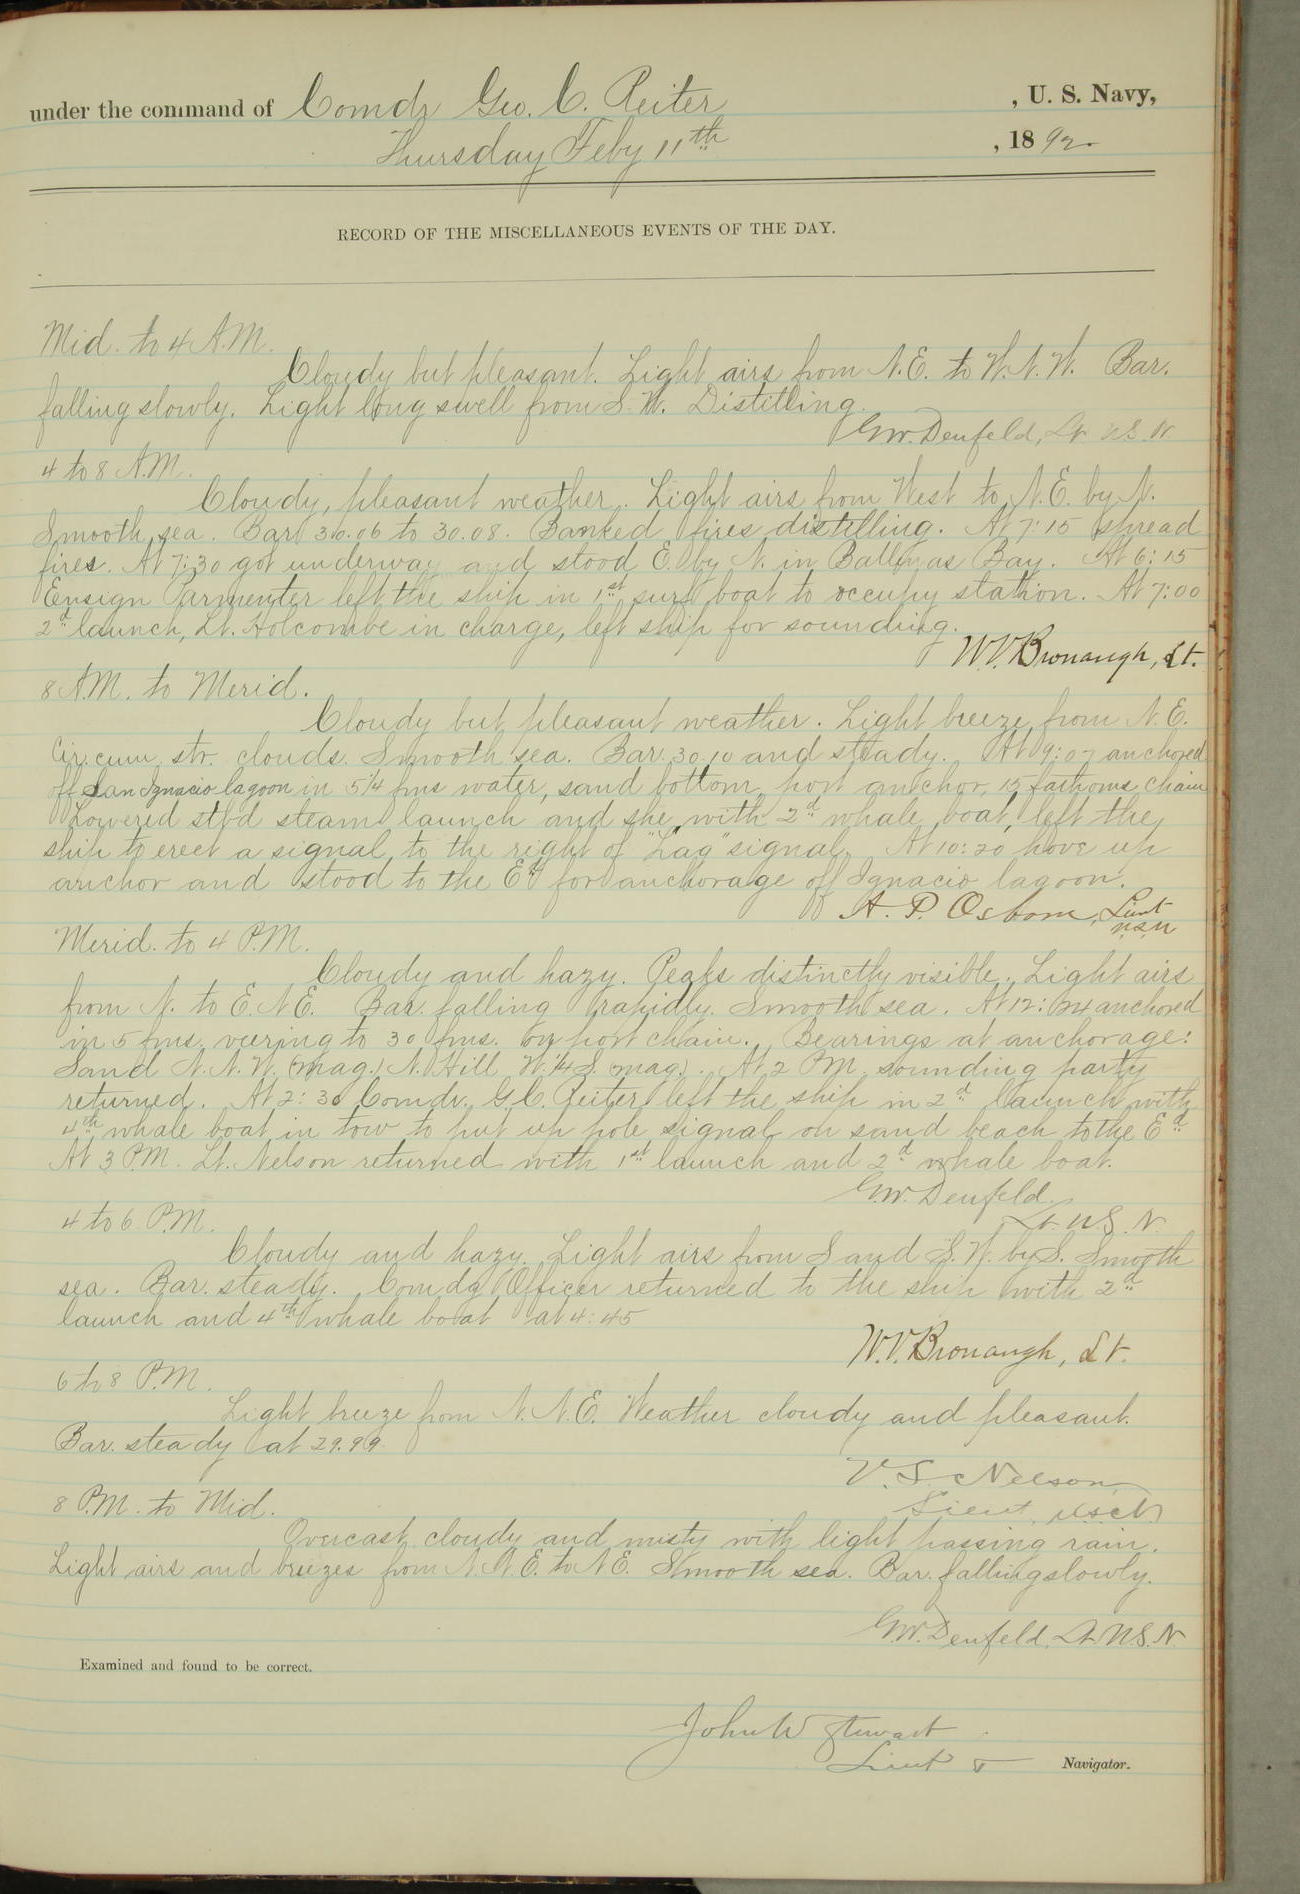 under the command of Comdr Geo. C. Reiter , U. S. Navy,
Thursday Feby 11th , 1892
RECORD OF THE MISCELLANEOUS EVENTS OF THE DAY.
Mid. to 4 A.M.
Cloudy but pleasant. Light airs from N.E. to W.N.W. Bar.
falling slowly. Light long swell from S.W. Distilling.
G.W. Denfeld, Lt. U.S.N.
4 to 8 A.M.
Cloudy, pleasant weather. Light airs from West to N.E. by N.
Smooth sea. Bar 30.06 to 30.08. Banked fires distilling. At 7:15 spread
fires. At 7:30 got underway and stood E. by N. in Ballenas Bay. At 6:15
Ensign Parmenter left the ship in 1st surf boat to occupy station. At 7:00
2d launch, Lt. Holcombe in charge, left ship for sounding.
W.V. Bronaugh, Lt.
8 A.M. to Merid.
Cloudy but pleasant weather. Light breeze from N.E.
Cir. cum. str. clouds. Smooth sea. Bar. 30.10 and steady. At 9:07 anchored
off San Ignacio lagoon in 5¼ fms water, sand bottom, port anchor, 15 fathoms chain
Lowered stb'd steam launch and she, with 2d whale boat, left the
ship to erect a signal to the right of "Lag" signal. At 10:20 hove up
anchor and stood to the Ed for anchorage off Ignacio lagoon.
A. P. Osborn, Lieut
U.S.N
Merid. to 4 P.M.
Cloudy and hazy. Peaks distinctly visible. Light airs
from N. to E.N.E. Bar. falling rapidly. Smooth sea. At 12:24 anchored
in 5 fms. veering to 30 fms. on port chain. Bearings at anchorage:
Sand N.N.W. (mag.) N. Hill W.¼S. (mag.). At 2 P.M. sounding party
returned. At 2:30 Comdr. G.C. Reiter left the ship in 2d launch with
4th whale boat in tow to put up pole signal on sand beach to the Ed
At 3 P.M. Lt. Nelson returned with 1st launch and 2d whale boat.
G.W. Denfeld.
Lt. U.S.N.
4 to 6 P.M.
Cloudy and hazy. Light airs from S and S.W. by S. Smooth
sea. Bar. steady. Comdg Officer returned to the ship with 2d
launch and 4th whale boat at 4:45
W.V. Bronaugh, Lt.
6 to 8 P.M.
Light breeze from N.N.E. Weather cloudy and pleasant.
Bar. steady at 29.99.
V. S. Nelson
Lieut. U.S.N
8 P.M. to Mid.
Overcast cloudy and misty with light passing rain.
Light airs and breezes from N.N.E. to N.E. Smooth sea. Bar. falling slowly.
G.W. Denfeld, Lt. U.S.N.
Examined and found to be correct.
John W Stewart
Lieut & Navigator.